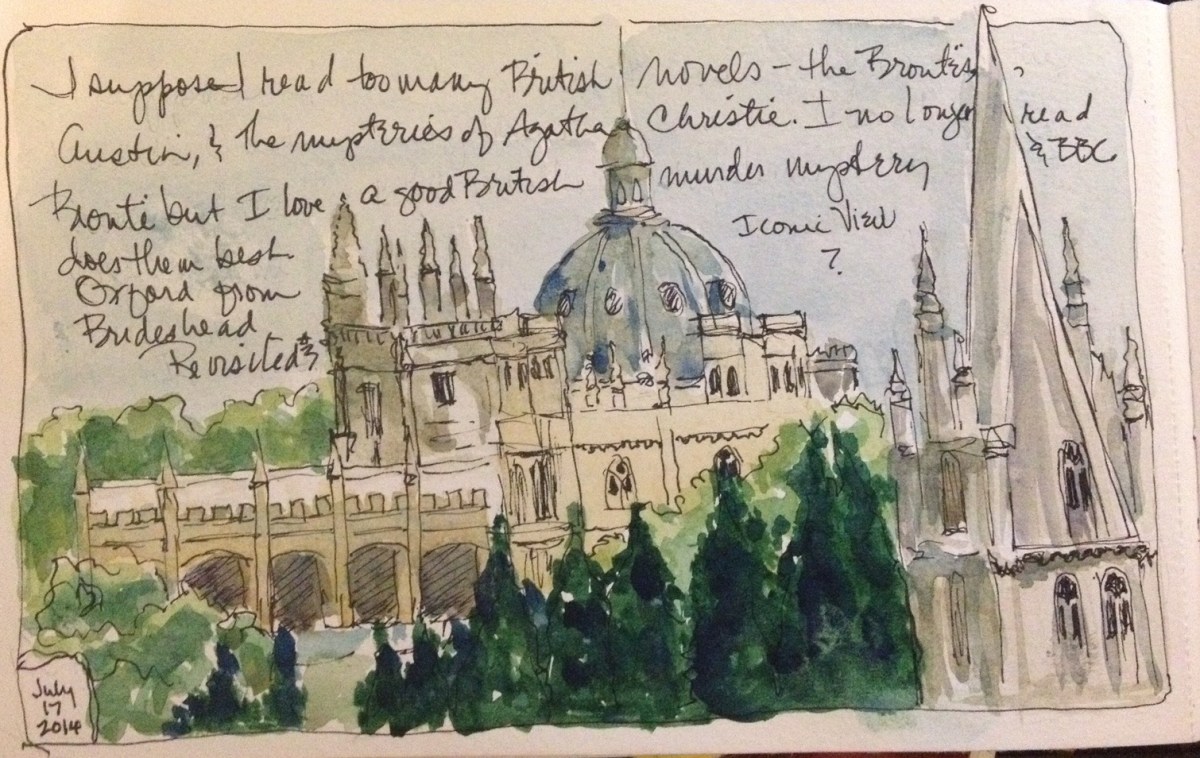 I suppose I read too many British novels – the Brontës,
Austin, & the mysteries of Agatha Christie. I no longer read
Bronté but I love a good British murder mystery & BBC
does them best
Oxford from
Brideshead
Revisited &
Iconic View
?
July
17
2014